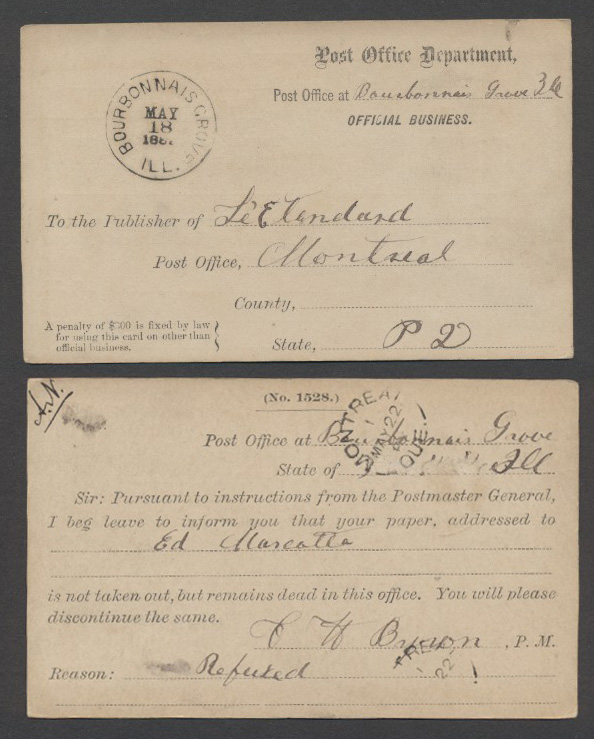 Post Office Department,
Post Office at Bourbonnais Grove Ill
OFFICIAL BUSINESS.
BOURBONNAIS GROVE
MAY
18
ILL.
To the Publisher of Le Etendard
Post Office, Montreal
County,
State, P Q
A penalty of $300 is fixed by law
for using this card on other than
official business.
A.N.
(No. 1528.)
MONTREAL
1
MAY 22
QUE.
Post Office at Bourbonnais Grove
State of Ill
Sir: Pursuant to instructions from the Postmaster General,
I beg leave to inform you that your paper, addressed to
Ed Marcotte
is not taken out, but remains dead in this office. You will please
discontinue the same.
C H Brown, P. M.
22
Reason: Refused